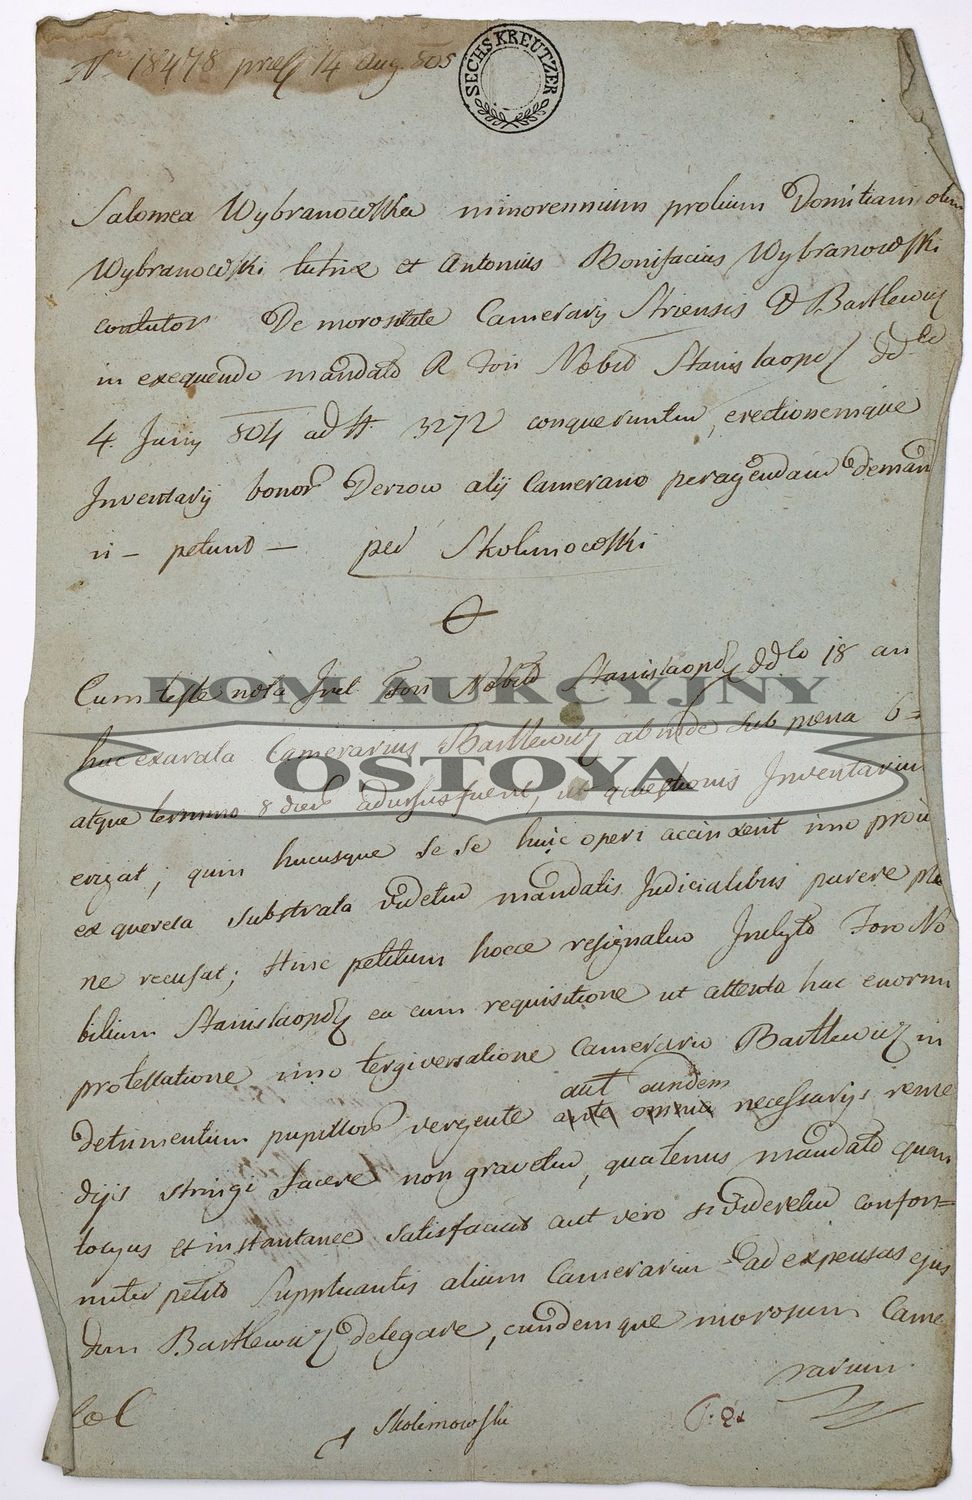 Nro 18478 praes 14 Aug 805
SECHS KREUTZER
Salomea Wybranowska minorennium prolium Domitiani olim
Wybranowski tutrix et Antonius Bonifacius Wybranowski
contutor De morositate Camerarij Striensis D Bartlewicz
in exequendo mandato Fori Stanislaopol
4. Junij 804 ad N 3272 conqueruntur, erectionemque
Inventarij bonor Derzow alij Camerario peragendam deman
ri – petunt – per Skolimowski
Cum teste nota Incl Fori Nobil Stanislaopol ddto 18 an
huc exarata Camerarius Bartlewicz ab inde sub paena 6=
atque termino 8 dies adursus fuerit, ut quaestionis Inventarium
erigat; quin hucusque se se huic operi accinxerit imo prou
ex querela substrata videtur mandatis Judicialibus parere pla
ne recusat; Hinc petitum hocce resignatur Inclyto Foro No
bilium Stanislaopol ea cum requisitione ut attenta hac enormi
protestatione imo tergiversatione Camerario Bartlewicz in
detrimentum pupillor vergente
aut eundem
necessarijs reme
dijs stringi facere non gravetur, quatenus mandato quan
tocyus et instantanee satisfaciat aut vero si videretur confor=
miter petito Supplicantis alium Camerarium ad expensas ejus
dem Bartlewicz delegare, eundemque morosum Came
rarium
Skolimowski
DOM AUKCYJNY
OSTOYA